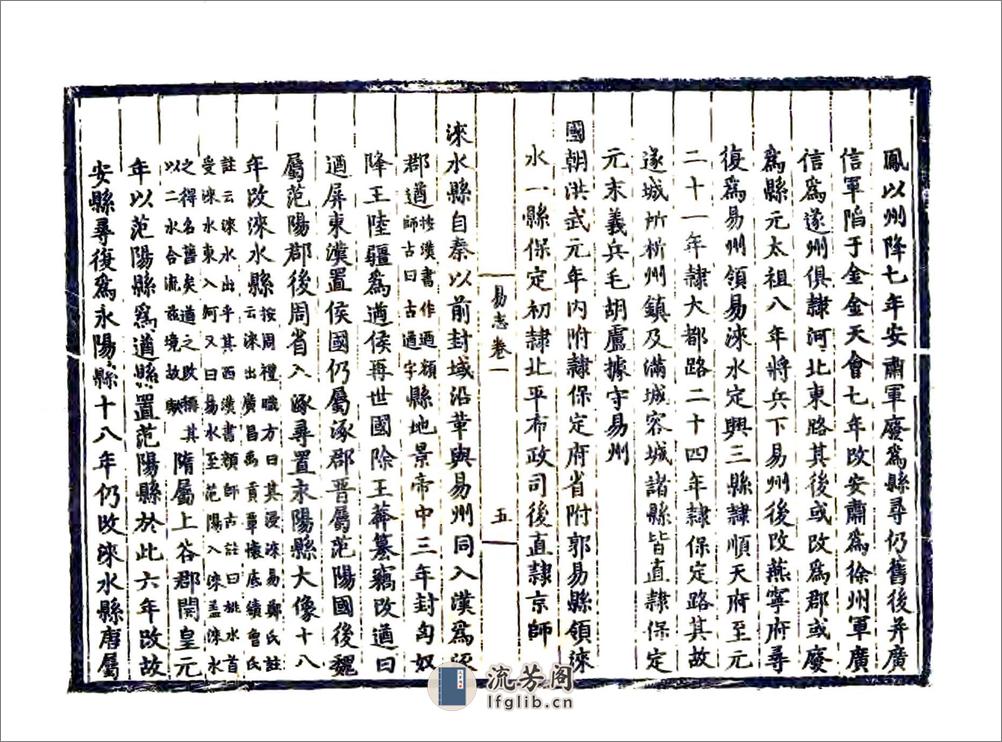 鳳以州降七年安肅軍廢爲縣尋仍舊後并廣
信軍陷于金金天會七年改安肅爲徐州軍廣
信爲遂州俱隷河北東路其後或改爲郡或廢
爲縣元太祖八年將兵下易州後改燕寧府尋
復爲易州領易淶水定興三縣隷順天府至元
二十一年隷大都路二十四年隷保定路其故
遂城所析州鎮及滿城容城諸縣皆直隷保定
元末義兵毛胡盧據守易州
國朝洪武元年内附隷保定府省附郭易縣領淶
水一縣保定初隷北平布政司後直隷京師
易志卷一
五
淶水縣自秦以前封域沿革與易州同入漢爲涿
郡遒按漢書作逎顔
師古曰古遒字縣地景帝中三年封匈奴
降王陸疆爲遒侯再世國除王莽簒竊改遒曰
遒屏東漢置侯國仍屬涿郡晋屬范陽國後魏
屬范陽郡後周省入涿尋置永陽縣大像十八
年改淶水縣按周禮職方曰其浸淶易鄭氏註
云淶出廣昌禹貢覃懷底績曾氏
註云淶水出乎其西漢書顔師古註曰桃水首
受淶水東入河又曰易水至范陽入淶盖淶水
之得名舊矣遒之改稱其
以二水合流兹境故歟隋屬上谷郡開皇元
年以范陽縣爲遒縣置范陽縣於此六年改故
安縣尋復爲永陽縣十八年仍改淶水縣唐屬
流芳阁
lfglib.cn